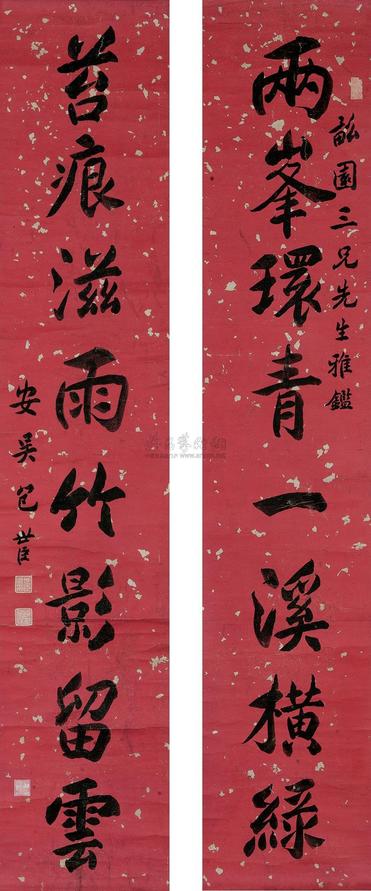 两峯環青一溪橫綠
畆園三兄先生雅鑑
苔痕滋雨竹影留雲
安吳包世臣